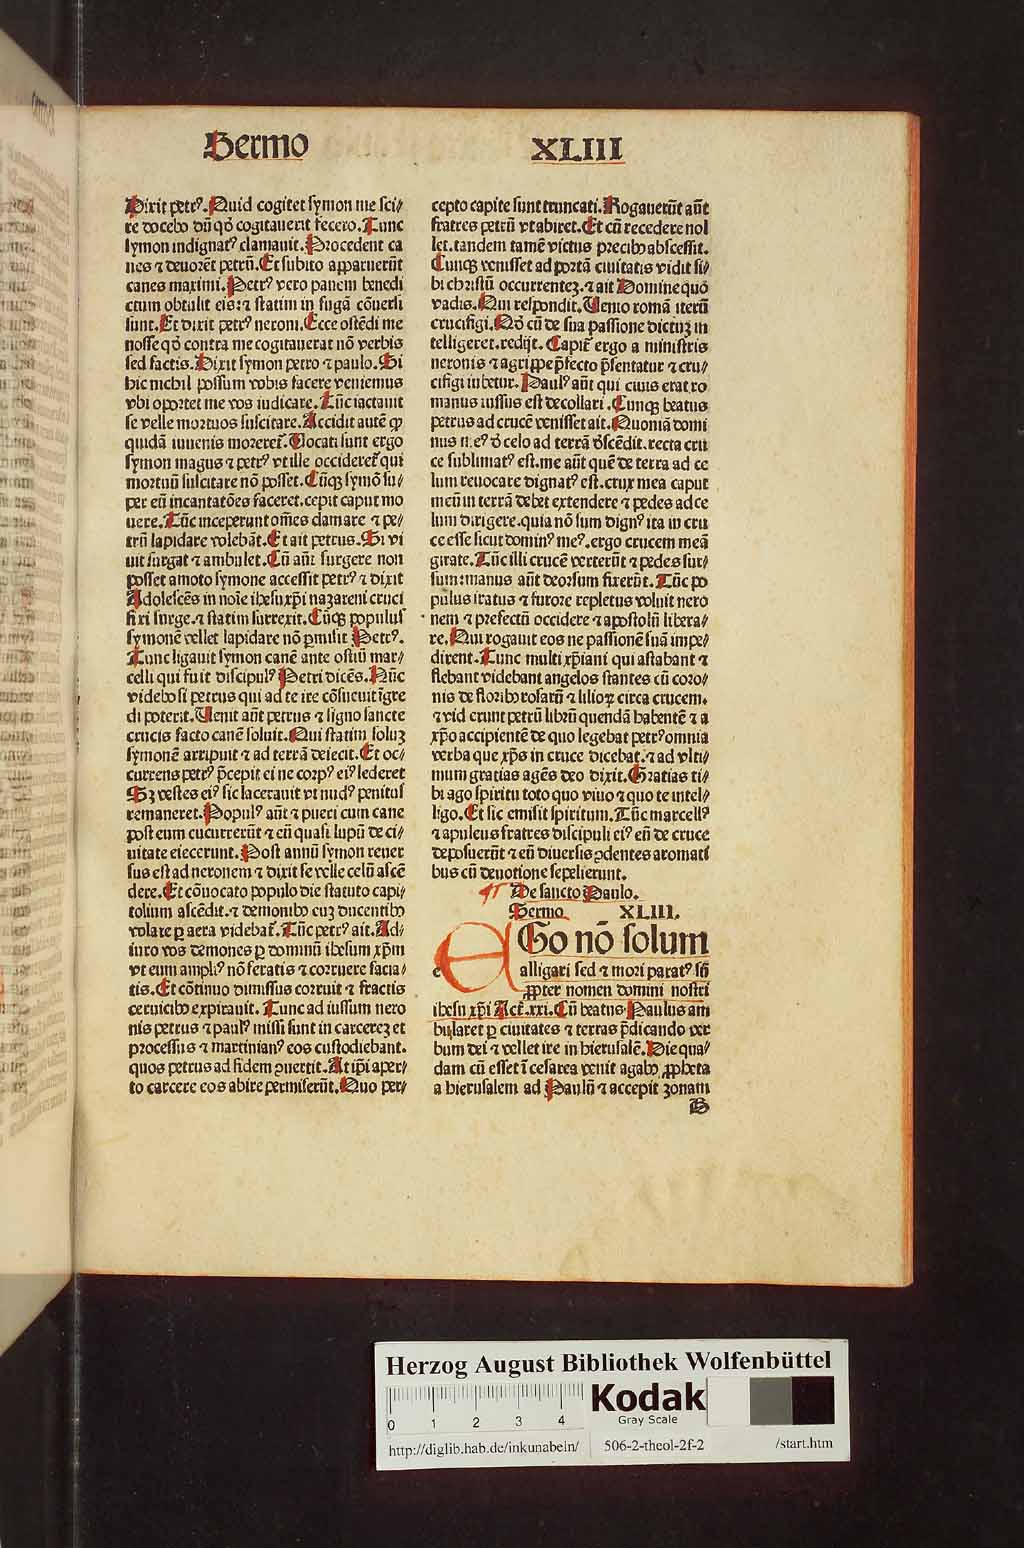 Sermo XLIII
Dixit petrꝰ. Quid cogitet symon me sci⸗
re docebo dū qđ cogitauerit fecero. Tunc
symon indignatꝰ clamauit. Procedent ca
nes ⁊ deuorēt petrū. Et subito apparuerūt
canes maximi. Petrꝰ vero panem benedi
ctum obtulit eis: ⁊ statim in fugā cōuersi
sunt. Et dixit petrꝰ neroni. Ecce ostēdi me
nosse qđ contra me cogitauerat nō verbis
sed factis. Dixit symon petro ⁊ paulo. Si
hic nichil possum vobis facere veniemus
vbi oportet me vos iudicare. Tūc iactauit
se velle mortuos suscitare. Accidit autē ꝙ
quidā iuuenis moreret᷑. Vocati sunt ergo
symon magus ⁊ petrꝰ vt ille occideret᷑ qui
mortuū suscitare nō posset. Cūqꝫ symō su⸗
per eū incantatōes faceret. cepit caput mo
uere. Tūc inceperunt om̄es clamare ⁊ pe⸗
trū lapidare volebāt. Et ait petrus. Si vi
uit surgat ⁊ ambulet. Cū aūt surgere non
posset amoto symone accessit petrꝰ ⁊ dixit
Adolescēs in noīe ihesu xp̄i nazareni cruci
fixi surge. ⁊ statim surrexit. Cūqꝫ populus
symonē vellet lapidare nō ꝑmisit Petrꝰ.
Tunc ligauit symon canē ante ostiū mar⸗
celli qui fuit discipulꝰ Petri dicēs. Nūc
videbo si petrus qui ad te ire cōsueuit īgre
di poterit. Uenit aūt petrus ⁊ signo sancte
crucis facto canē soluit. Qui statim soluꝫ
symonē arripuit ⁊ ad terrā deiecit. Et oc⸗
currens petrꝰ p̄cepit ei ne corpꝰ eiꝰ lederet
Sꝫ vestes eiꝰ sic lacerauit vt nudꝰ penitus
remaneret. Populꝰ aūt ⁊ pueri cum cane
post eum cucurrerūt ⁊ eū quasi lupū de ci⸗
uitate eiecerunt. Post annū symon reuer
sus est ad neronem ⁊ dixit se velle celū ascē
dere. Et cōuocato populo die statuto capi⸗
tolium ascēdit. ⁊ demonibꝰ cuꝫ ducentibꝰ
volare ꝑ aera videbat᷑. Tūc petrꝰ ait. Ad⸗
iuro vos demones ꝑ dominū ihesum xp̄m
vt eum ampliꝰ nō feratis ⁊ corruere facia⸗
tis. Et cōtinuo dimissus corruit ⁊ fractis
ceruicibꝰ expirauit. Tunc ad iussum nero
nis petrus ⁊ paulꝰ missi sunt in carcereꝫ et
processus ⁊ martinianꝰ eos custodiebant.
quos petrus ad fidem ꝯuertit. At ip̄i aper⸗
to carcere eos abire permiserūt. Quo per⸗
cepto capite sunt truncati. Rogauerūt aūt
fratres petrū vt abiret. Et cū recedere nol
let. tandem tamē victus precibꝰ abscessit.
Cunqꝫ venisset ad portā ciuitatis vidit si⸗
bi christū occurrenteꝫ. ⁊ ait Domine quo
vadis. Qui respondit. Uenio romā iterū
crucifigi. Qđ cū de sua passione dictuꝫ in
telligeret. redijt. Capit᷑ ergo a ministris
neronis ⁊ agrippe p̄fecto p̄sentatur ⁊ cru⸗
cifigi iubetur. Paulꝰ aūt qui ciuis erat ro
manus iussus est decollari. Cunqꝫ beatus
petrus ad crucē venisset ait. Quoniā domi
nus meꝰ đ celo ad terrā đscēdit. recta cru
ce sublimatꝰ est. me aūt quē de terra ad ce
lum reuocare dignatꝰ est. crux mea caput
meū in terrā debet extendere ⁊ pedes ad ce
lum dirigere. quia nō sum dignꝰ ita in cru
ce esse sicut dominꝰ meꝰ. ergo crucem meā
girate. Tūc illi crucē verterūt ⁊ pedes sur⸗
sum: manus aūt deorsum fixerūt. Tūc po
pulus iratus ⁊ furore repletus voluit nero
nem ⁊ prefectū occidere ⁊ apostolū libera⸗
re. Qui rogauit eos ne passionē suā impe⸗
dirent. Tunc multi xp̄iani qui astabant ⁊
flebant videbant angelos stantes cū coro⸗
nis de floribꝰ rosarū ⁊ lilioꝝ circa crucem.
⁊ viderunt petrū librū quendā habentē ⁊ a
xp̄o accipientē de quo legebat petrꝰ omnia
verba que xp̄s in cruce dicebat. ⁊ ad vlti⸗
mum gratias agēs deo dixit. Gratias ti⸗
bi ago spiritu toto quo viuo ⁊ quo te intel⸗
ligo. Et sic emisit spiritum. Tūc marcellꝰ
⁊ apuleus fratres discipuli eiꝰ eū de cruce
deposuerūt ⁊ eū diuersis ꝯdentes aromati
bus cū deuotione sepelierunt.
¶ De sancto Paulo.
Sermo XLIII.
EGo nō solum
alligari sed ⁊ mori paratꝰ sū
ꝓpter nomen domini nostri
ihesu xp̄i Act᷑. xxi. Cū beatus Paulus am
bularet ꝑ ciuitates ⁊ terras p̄dicando ver
bum dei ⁊ vellet ire in hierusalē. Die qua⸗
dam cū esset ī cesarea venit agabꝰ ꝓpheta
a hierusalem ad Paulū ⁊ accepit zonam
B
Herzog August Bibliothek Wolfenbüttel
0 1 2 3 4
Kodak
Gray Scale
http://diglib.hab.de/inkunabeln/ 506-2-theol-2f-2 /start.htm